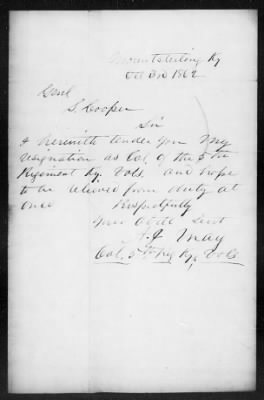 Mountsterling Ky
Oct 3rd 1862
Genl
S. Cooper
Sir
I Herewith tender you my
resignation as Col of the 5th
Regiment Ky. Vols. and hope
to be relieved from duty at
once Respectfully
Your Obdt Servt
A. J. May
Col. 5th Reg Ky. Vols